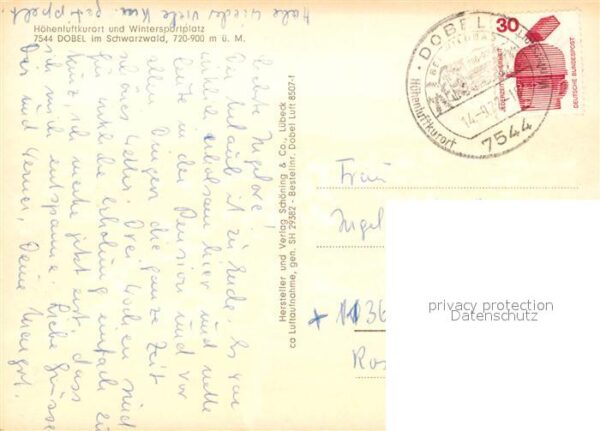 Höhenluftkurort und Wintersportplatz
7544 DOBEL im Schwarzwald, 720-900 m ü. M.
Habe wieder viele km
Liebe Ingelore!
Der Urlaub ist zu Ende. Es war
wirklich erholsam hier und nette
Leute in der Pension und vor
allen Dingen die ganze Zeit
Wetter. Drei Wochen sind
für solche Erholung einfach zu
kurz, ich merke jetzt erst, dass
ich mich entspanne. Liebe Grüsse
Dir und Werner, Deine Margot.
Hersteller und Verlag Schöning & Co., Lübeck
ca Luftaufnahme, gen. SH 29382 - Bestellnr. Dobel Luft 8507-1
DOBEL
Höhenluftkurort
7544
30
DEUTSCHE BUNDESPOST
Frau
Ingel
+ 1 1036
Ros
privacy protection
Datenschutz